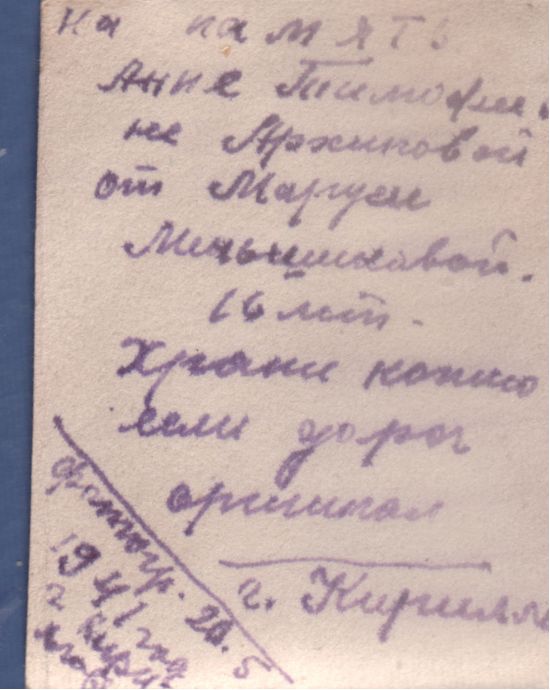 на память
Анне Тимофеев
не Архиповой
от Маруси
Меньшиковой.
16 лет.
Храни копию
если дорог
оригинал
г. Кирилл
фотогр. 20. 5
1941 год
г. Кири